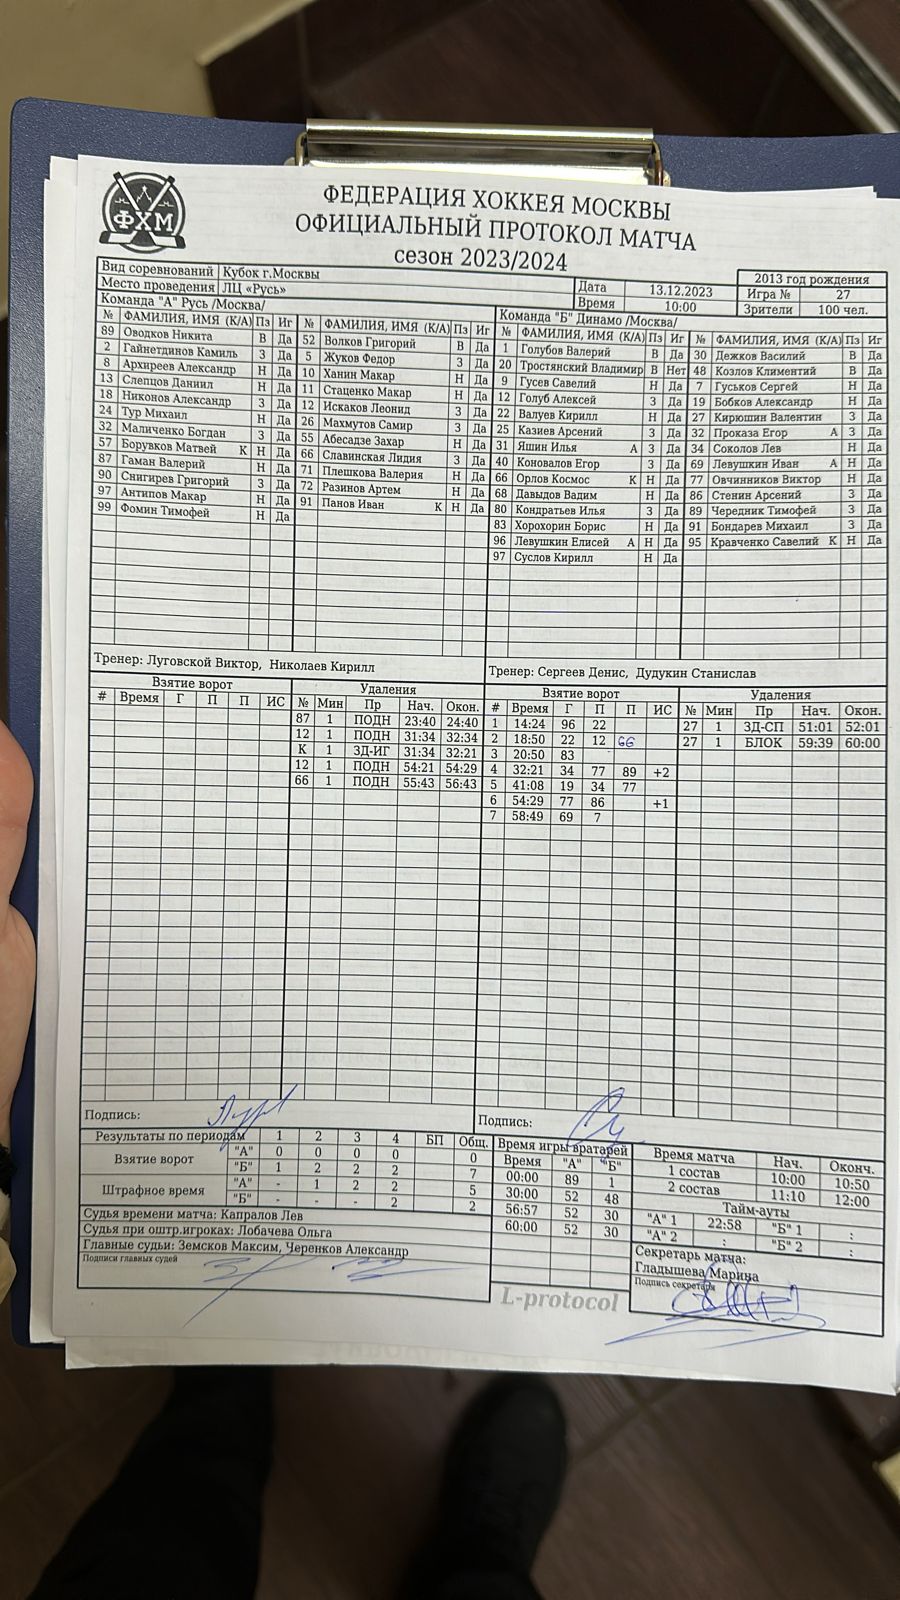 ФХМ
ФЕДЕРАЦИЯ ХОККЕЯ МОСКВЫ
ОФИЦИАЛЬНЫЙ ПРОТОКОЛ МАТЧА
сезон 2023/2024
Вид соревнований Кубок г.Москвы Дата 13.12.2023 2013 год рождения
Место проведения ЛЦ «Русь» Время 10:00 Игра № 27
Зрители 100 чел.
Команда "А" Русь /Москва/
№ ФАМИЛИЯ, ИМЯ (К/А) Пз Иг № ФАМИЛИЯ, ИМЯ (К/А) Пз Иг
89 Оводков Никита В Да 52 Волков Григорий В Да
2 Гайнетдинов Камиль З Да 5 Жуков Федор З Да
8 Архиреев Александр Н Да 10 Ханин Макар Н Да
13 Слепцов Даниил Н Да 11 Стаценко Макар Н Да
18 Никонов Александр З Да 12 Искаков Леонид З Да
24 Тур Михаил Н Да 26 Махмутов Самир З Да
32 Маличенко Богдан З Да 55 Абесадзе Захар Н Да
57 Борувков Матвей К Н Да 66 Славинская Лидия З Да
87 Гаман Валерий Н Да 71 Плешкова Валерия Н Да
90 Снигирев Григорий З Да 72 Разинов Артем Н Да
97 Антипов Макар Н Да 91 Панов Иван К Н Да
99 Фомин Тимофей Н Да
Команда "Б" Динамо /Москва/
№ ФАМИЛИЯ, ИМЯ (К/А) Пз Иг № ФАМИЛИЯ, ИМЯ (К/А) Пз Иг
1 Голубов Валерий В Да 30 Дежков Василий В Да
20 Тростянский Владимир В Нет 48 Козлов Климентий В Да
9 Гусев Савелий Н Да 7 Гуськов Сергей Н Да
12 Голуб Алексей З Да 19 Бобков Александр Н Да
22 Валуев Кирилл Н Да 27 Кирюшин Валентин З Да
25 Казиев Арсений З Да 32 Проказа Егор А З Да
31 Яшин Илья А З Да 34 Соколов Лев Н Да
40 Коновалов Егор З Да 69 Левушкин Иван А Н Да
66 Орлов Космос К Н Да 77 Овчинников Виктор Н Да
68 Давыдов Вадим Н Да 86 Стенин Арсений З Да
80 Кондратьев Илья З Да 89 Чередник Тимофей З Да
83 Хорохорин Борис Н Да 91 Бондарев Михаил З Да
96 Левушкин Елисей А Н Да 95 Кравченко Савелий К Н Да
97 Суслов Кирилл Н Да
Тренер: Луговской Виктор, Николаев Кирилл
Тренер: Сергеев Денис, Дудукин Станислав
Взятие ворот Удаления
# Время Г П П ИС № Мин Пр Нач. Окон.
87 1 ПОДН 23:40 24:40
12 1 ПОДН 31:34 32:34
К 1 ЗД-ИГ 31:34 32:21
12 1 ПОДН 54:21 54:29
66 1 ПОДН 55:43 56:43
Взятие ворот Удаления
# Время Г П П ИС № Мин Пр Нач. Окон.
1 14:24 96 22 27 1 ЗД-СП 51:01 52:01
2 18:50 22 12 66 27 1 БЛОК 59:39 60:00
3 20:50 83
4 32:21 34 77 89 +2
5 41:08 19 34 77
6 54:29 77 86 +1
7 58:49 69 7
Подпись:
Подпись:
Результаты по периодам 1 2 3 4 БП Общ.
Взятие ворот "А" 0 0 0 0 0
"Б" 1 2 2 2 7
Штрафное время "А" - 1 2 2 5
"Б" - - - 2 2
Судья времени матча: Капралов Лев
Судья при оштр.игроках: Лобачева Ольга
Главные судьи: Земсков Максим, Черенков Александр
Подписи главных судей
Время игры вратарей
Время "А" "Б"
00:00 89 1
30:00 52 48
56:57 52 30
60:00 52 30
Время матча Нач. Оконч.
1 состав 10:00 10:50
2 состав 11:10 12:00
Тайм-ауты
"А" 1 22:58 "Б" 1 :
"А" 2 : "Б" 2 :
Секретарь матча:
Гладышева Марина
Подпись секретаря
L-protocol